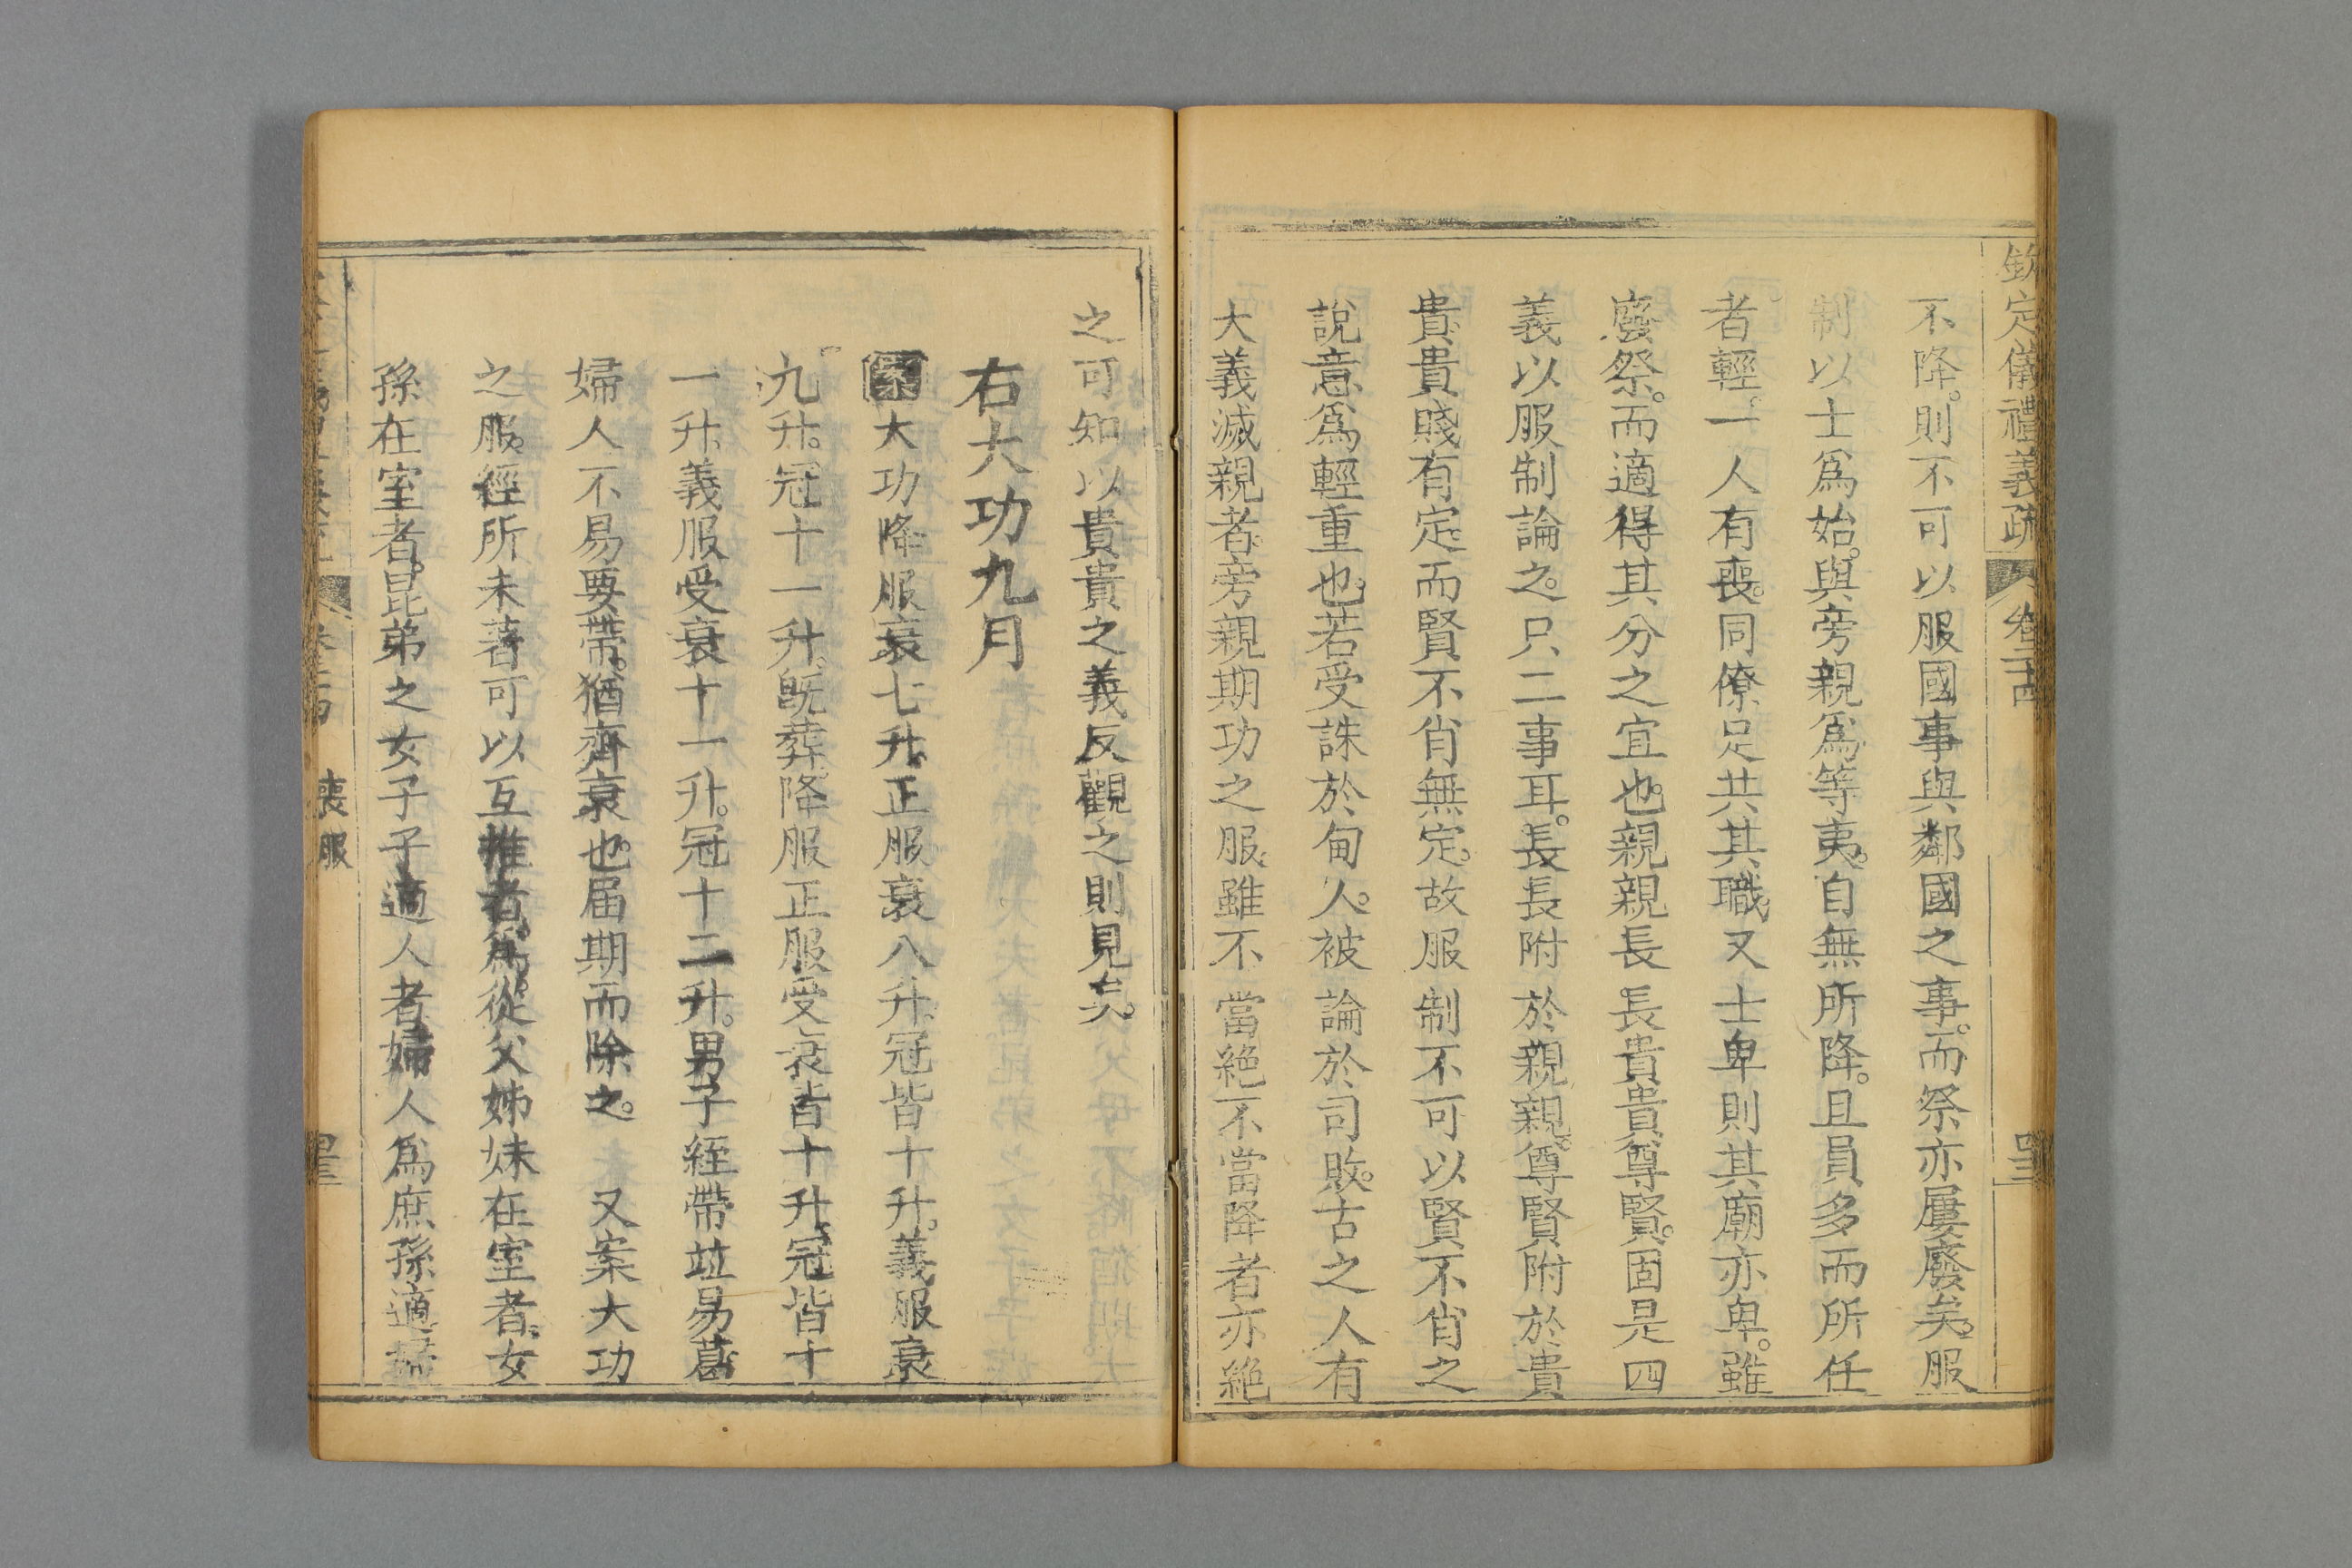 欽定儀禮義疏 卷二十四
不降。則不可以服國事與鄰國之事。而祭亦屢廢矣。服
制以士爲始。與旁親爲等夷。自無所降。且員多而所任
者輕。一人有喪。同僚足共其職。又士卑則其廟亦卑。雖
廢祭。而適得其分之宜也。親親長長貴貴尊賢。固是四
義以服制論之。只二事耳。長長附於親親。尊賢附於貴
貴。貴賤有定。而賢不肖無定。故服制不可以賢不肖之
說意爲輕重也。若受誅於甸人。被論於司敗。古之人有
大義滅親者。旁親期功之服。雖不當絶不當降者亦絶
之可知以貴貴之義反觀之則見矣。
右大功九月
案大功降服衰七升。正服衰八升。冠皆十升。義服衰
九升。冠十一升。旣葬降服正服受衰皆十升。冠皆十
一升。義服受衰十一升。冠十二升。男子絰帶竝易葛
婦人不易要帶。猶齊衰也。届期而除之。 又案大功
之服。經所未著可以互推者。爲從父姊妹在室者。女
孫在室者。昆弟之女子子適人者婦人爲庶孫適婦
喪服